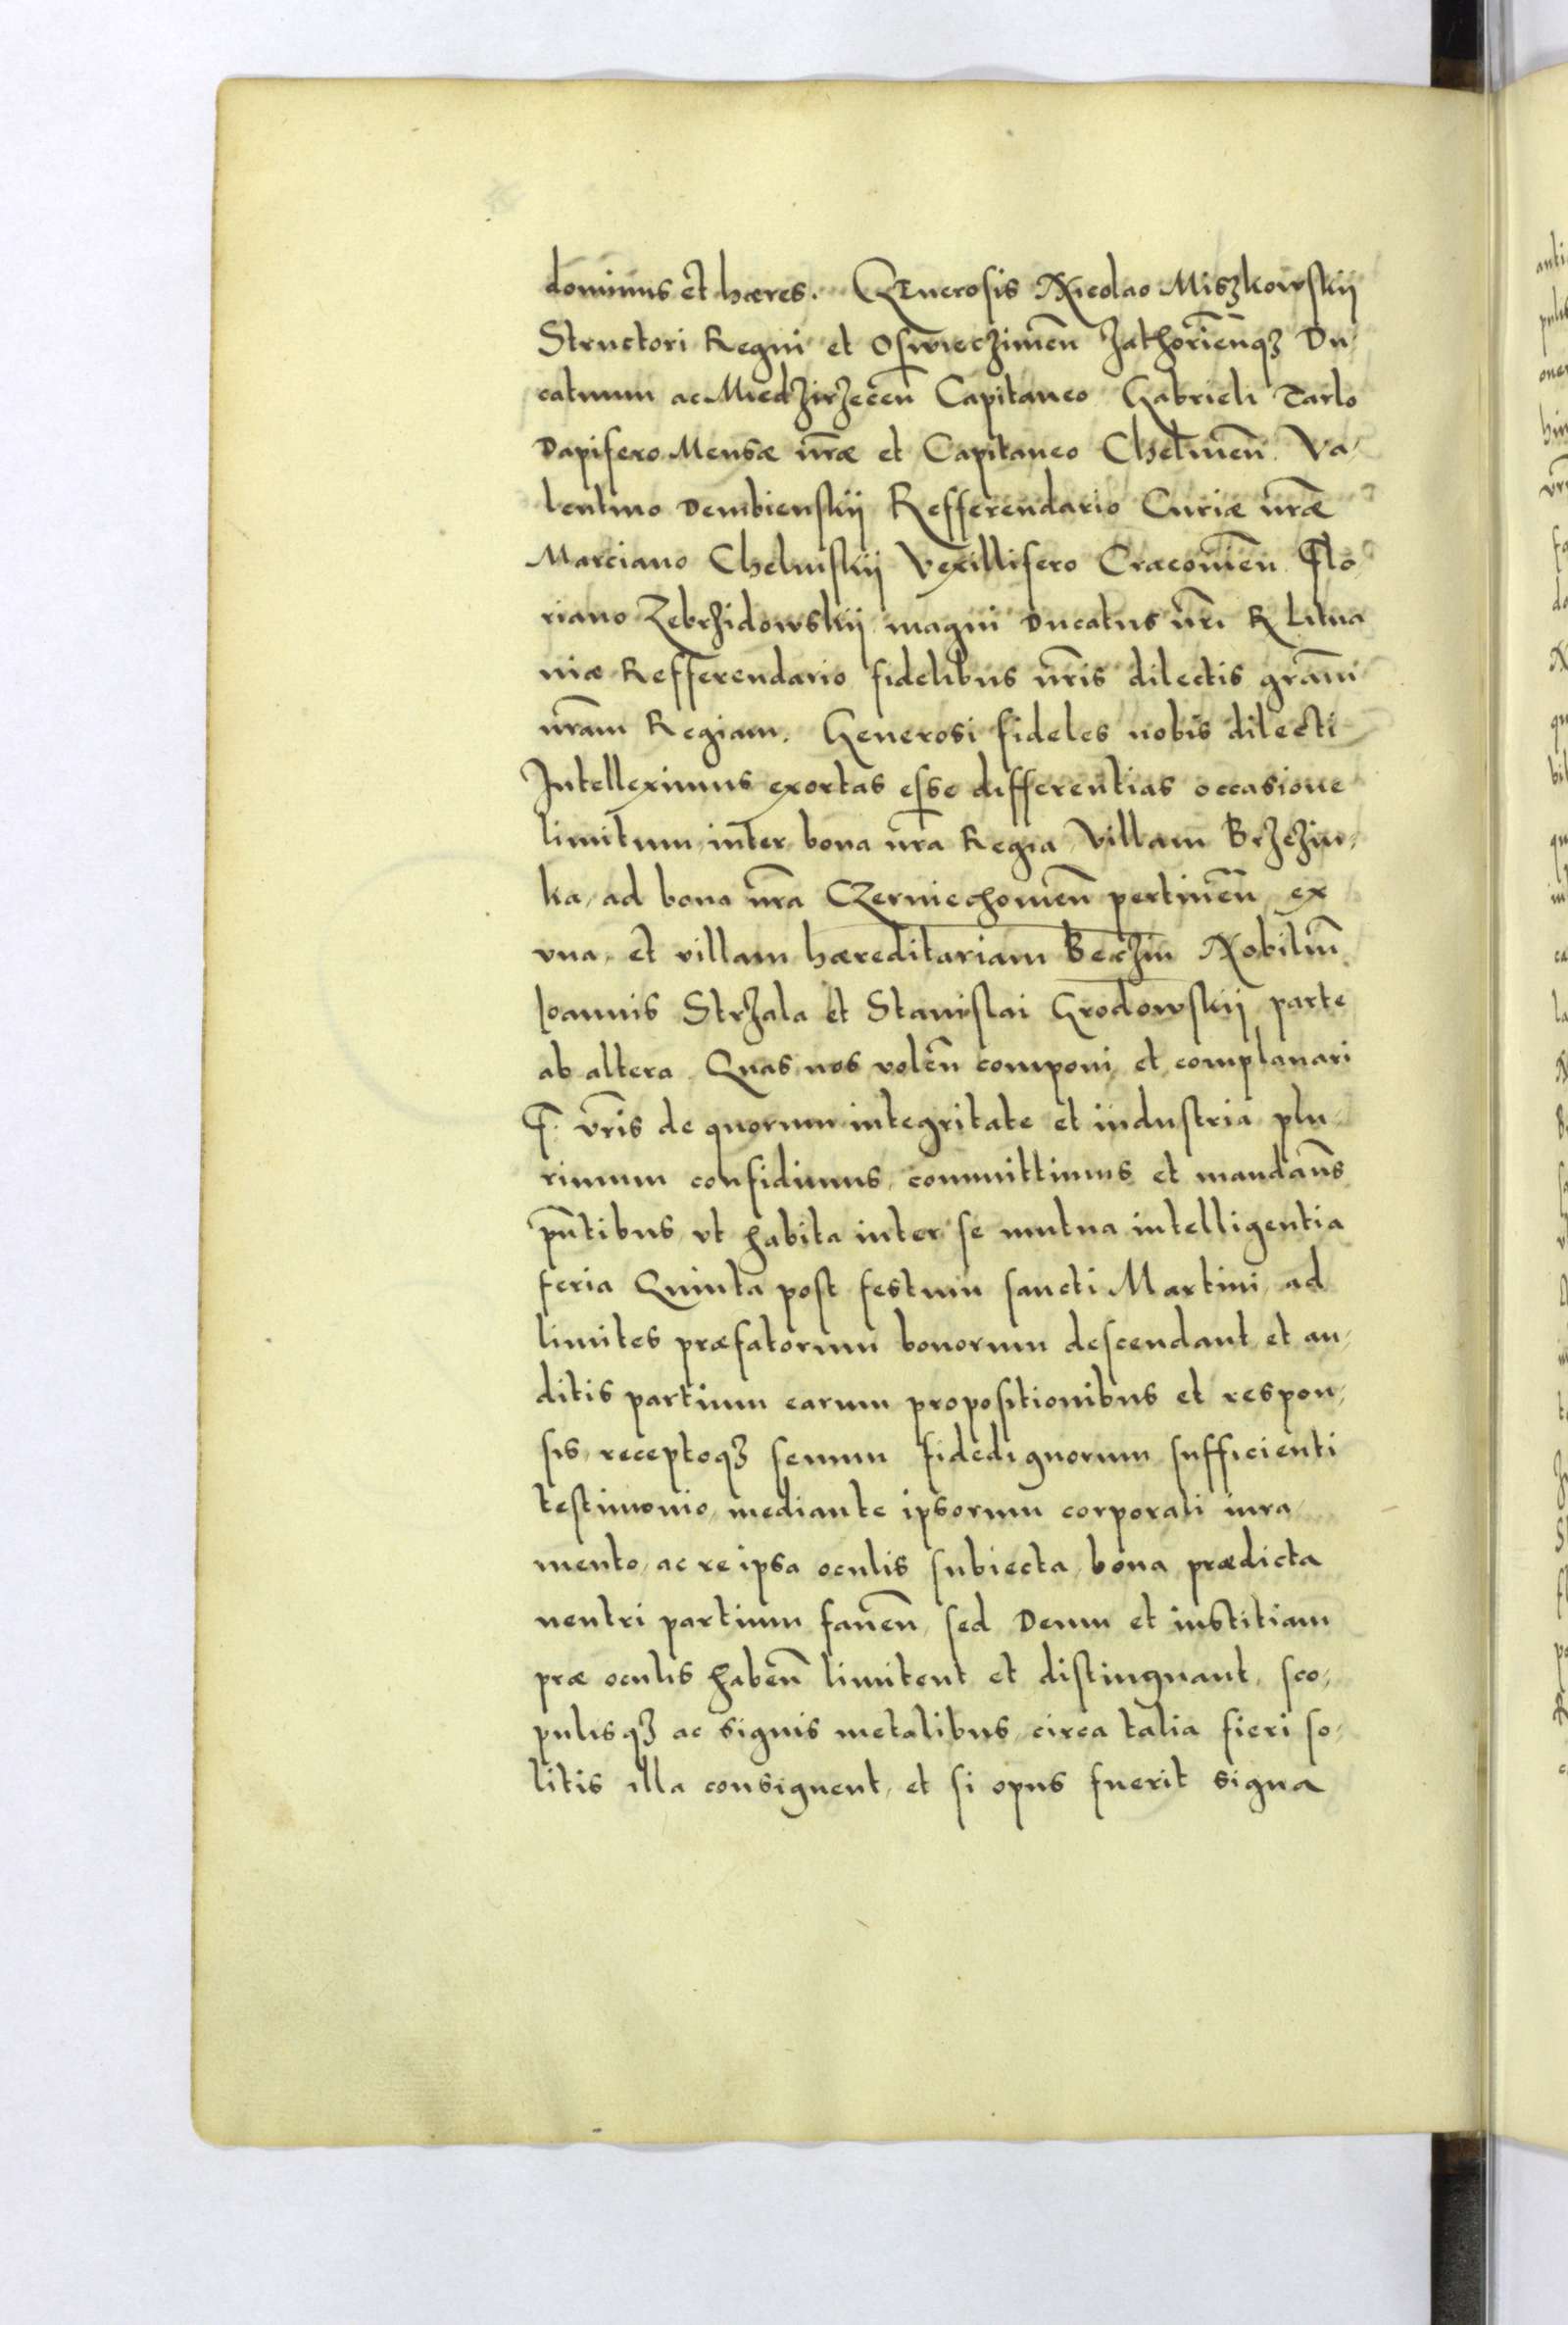 dominus et hæres. GEnerosis Nicolao Miszkowskij
Structori Regni et Oswieczimen̄ Zathorien̄qȝ Du,
catuum ac Miedzirzecen̄ Capitaneo Gabrieli Tarlo
Dapifero Mensæ nr̄æ et Capitaneo Chelmen̄. Va,
lentino Dembienskij Refferendario Curiæ nr̄æ
Marciano Chelmskij Vexillifero Cracouien̄ Flo,
riano Zebrzidowskij magni Ducatus nr̄i Litua
niæ Refferendario fidelibus nr̄is dilectis grām
nr̄am Regiam. Generosi fideles nobis dilecti
Intelleximus exortas esse differentias occasione
limitum inter bona nr̄a Regia Villam Brzezin,
ka, ad bona nr̄a Czerniechouien̄ pertinen̄ ex
vna, et villam hæreditariam Berzin Nobiliū
Ioannis Strzala et Stanislai Grodowskij parte
ab altera. Quas nos volen̄ componi et complanari
F. vr̄is de quorum integritate et industria plu,
rimum confidimus, committimus et mandam̄s
pn̄tibus, vt habita inter se mutua intelligentia
feria Quinta post festum sancti Martini, ad
limites præfatorum bonorum descendant, et au,
ditis partium earum propositionibus et respon,
sis, receptoqȝ senum fidedignorum sufficienti
testimonio, mediante ipsorum corporali iura,
mento, ac re ipsa oculis subiecta, bona prædicta
neutri partium fauen̄, sed Deum et iustitiam
præ oculis haben̄ limitent et distinguant, sco,
pulisqȝ ac signis metalibus circa talia fieri so,
litis illa consignent, et si opus fuerit signa